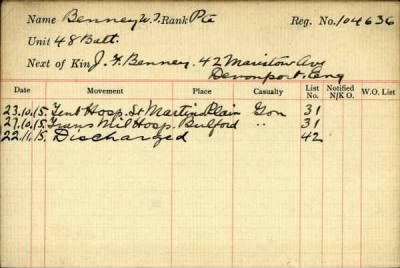 Name Benney W. J. Rank Pte Reg. No. 104636
Unit 48 Batt.
Next of Kin J. F. Benney. 42 Maristow Ave
Devonport. Eng
Date Movement Place Casualty List No. Notified N/K O. W.O. List
23.10.15. Tent Hosp. St Martins Plain Gon 31
27.10.15. Trans Mil Hosp. Bulford " 31
22.11.15. Discharged 42